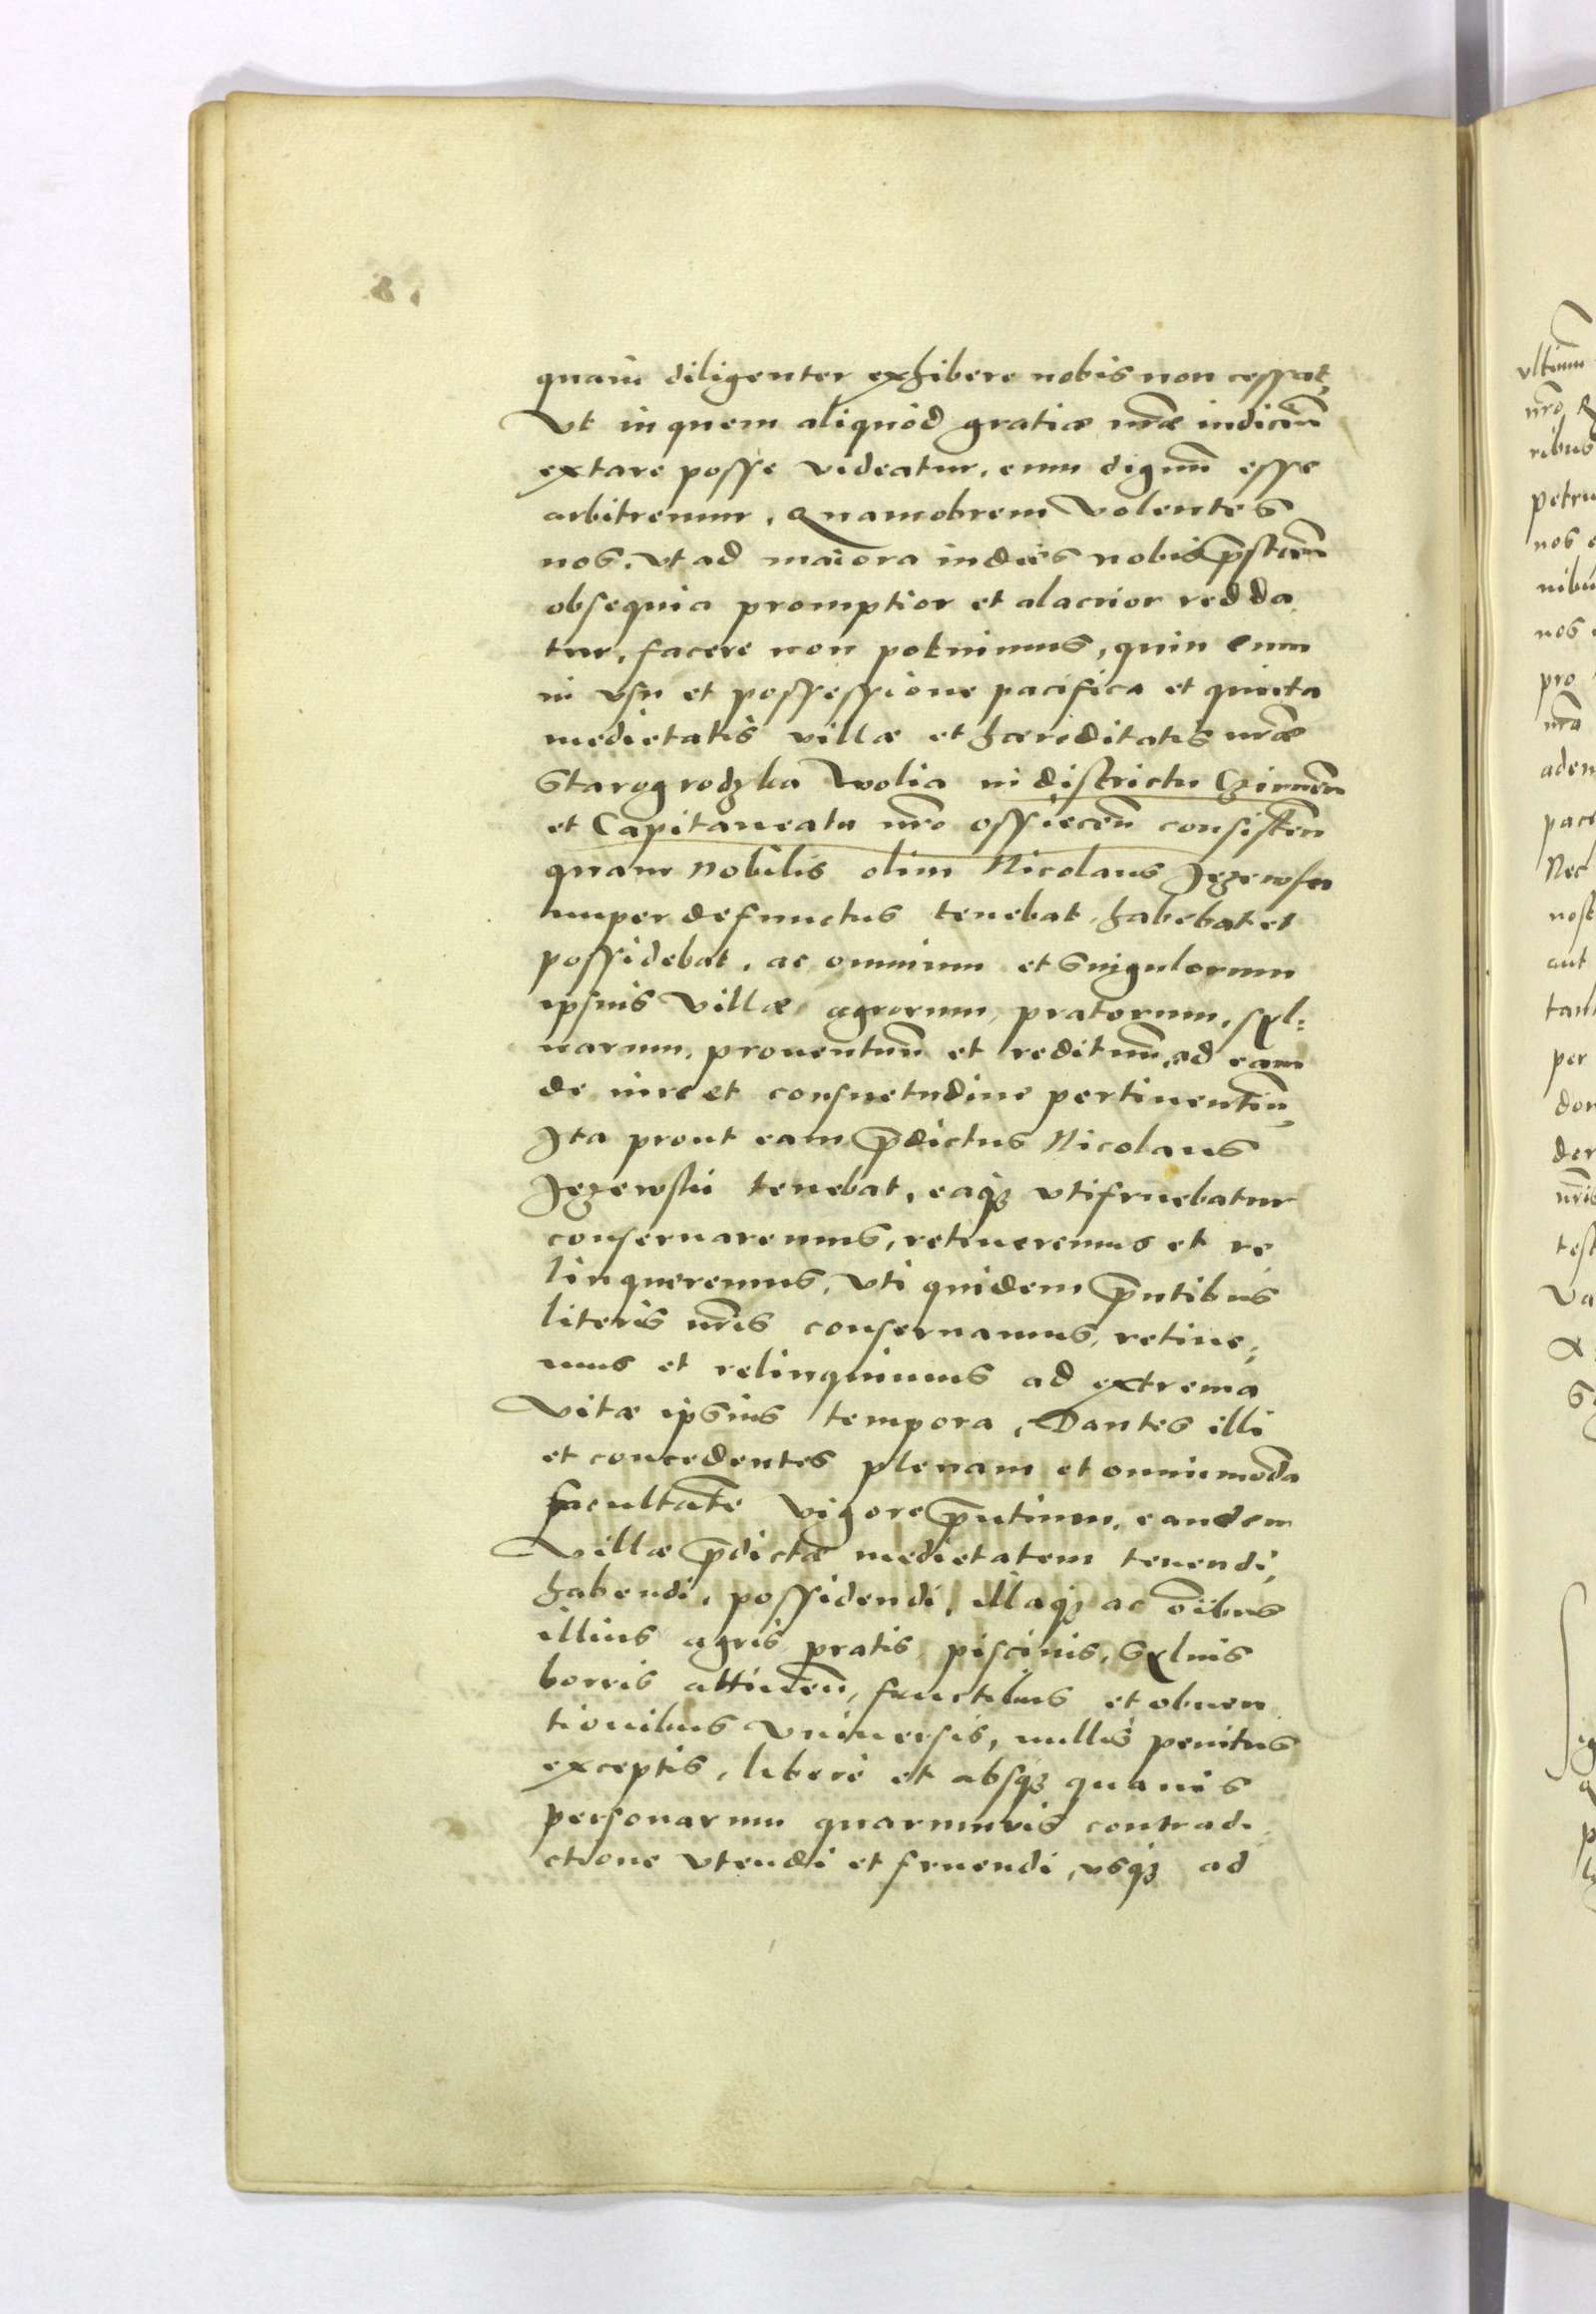 quam diligenter exhibere nobis non cessat,
Vt in quem aliquod gratiæ nr̃æ indiciũ
extare posse videatur, eum dignũ esse
arbitremur, Quamobrem Volentes
nos, vt ad maiora indies nobis p̃standũ
obsequia promptior et alacrior redda
tur, facere non potuimus, quin eum
in vsu et possessione pacifica et quieta
medietatis villæ et hæreditatis nr̃æ
Starogrodzka wolia in districtu Czirneñ
et Capitaneatu nr̃o ossieceñ consisteñ
quam Nobilis olim Nicolaus Jezewski
nuper defunctus tenebat, habebat et
possidebat, ac omnium et singulorum
ipsius Villæ, agrorum, pratorum, syl=
uarum, prouentuũ et redituũ, ad eam
de iure et consuetudine pertinentiũ,
Ita prout eam p̃dictus Nicolaus
Jezewski tenebat, eaqꝫ vtifruebatur
conseruaremus, retineremus et re
linqueremus, Vti quidem p̃ntibus
literis nr̃is conseruamus, retine=
mus et relinquimus ad extrema
Vitæ ipsius tempora, Dantes illi
et concedentes plenam et omnimodã
facultatẽ Vigore p̃ntium, eandem
Villæ p̃dictæ medietatem tenendi,
habendi, possidendi, illaqꝫ ac oĩbus
illius agris pratis piscinis, syluis
borris attineñ, fructibus et obuen
tionibus Vniuersis, nullis penitus
exceptis, liberè et absqꝫ quauis
personarum quarumuis contradi
ctione vtendi et fruendi, vsqꝫ ad